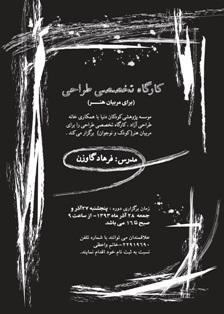 کارگاه تخصصی طراحی
(برای مربیان هنر)
موسسه پژوهشی کودکان دنیا با همکاری خانه
طراحی آزاد ، کارگاه تخصصی طراحی را برای
مربیان هنر(کودک و نوجوان) برگزار می کند .
مدرس : فرهاد گاوزن
زمان برگزاری دوره : پنجشنبه ۲۷ آذر و
جمعه ۲۸ آذر ماه ۱۳۹۳- از ساعت ۹
صبح تا ۱۶ می باشد
علاقمندان می توانند با شماره تلفن
۲۲۹۱۹۶۹۰ - خانم واحظی
نسبت به ثبت نام خود اقدام نمایند.